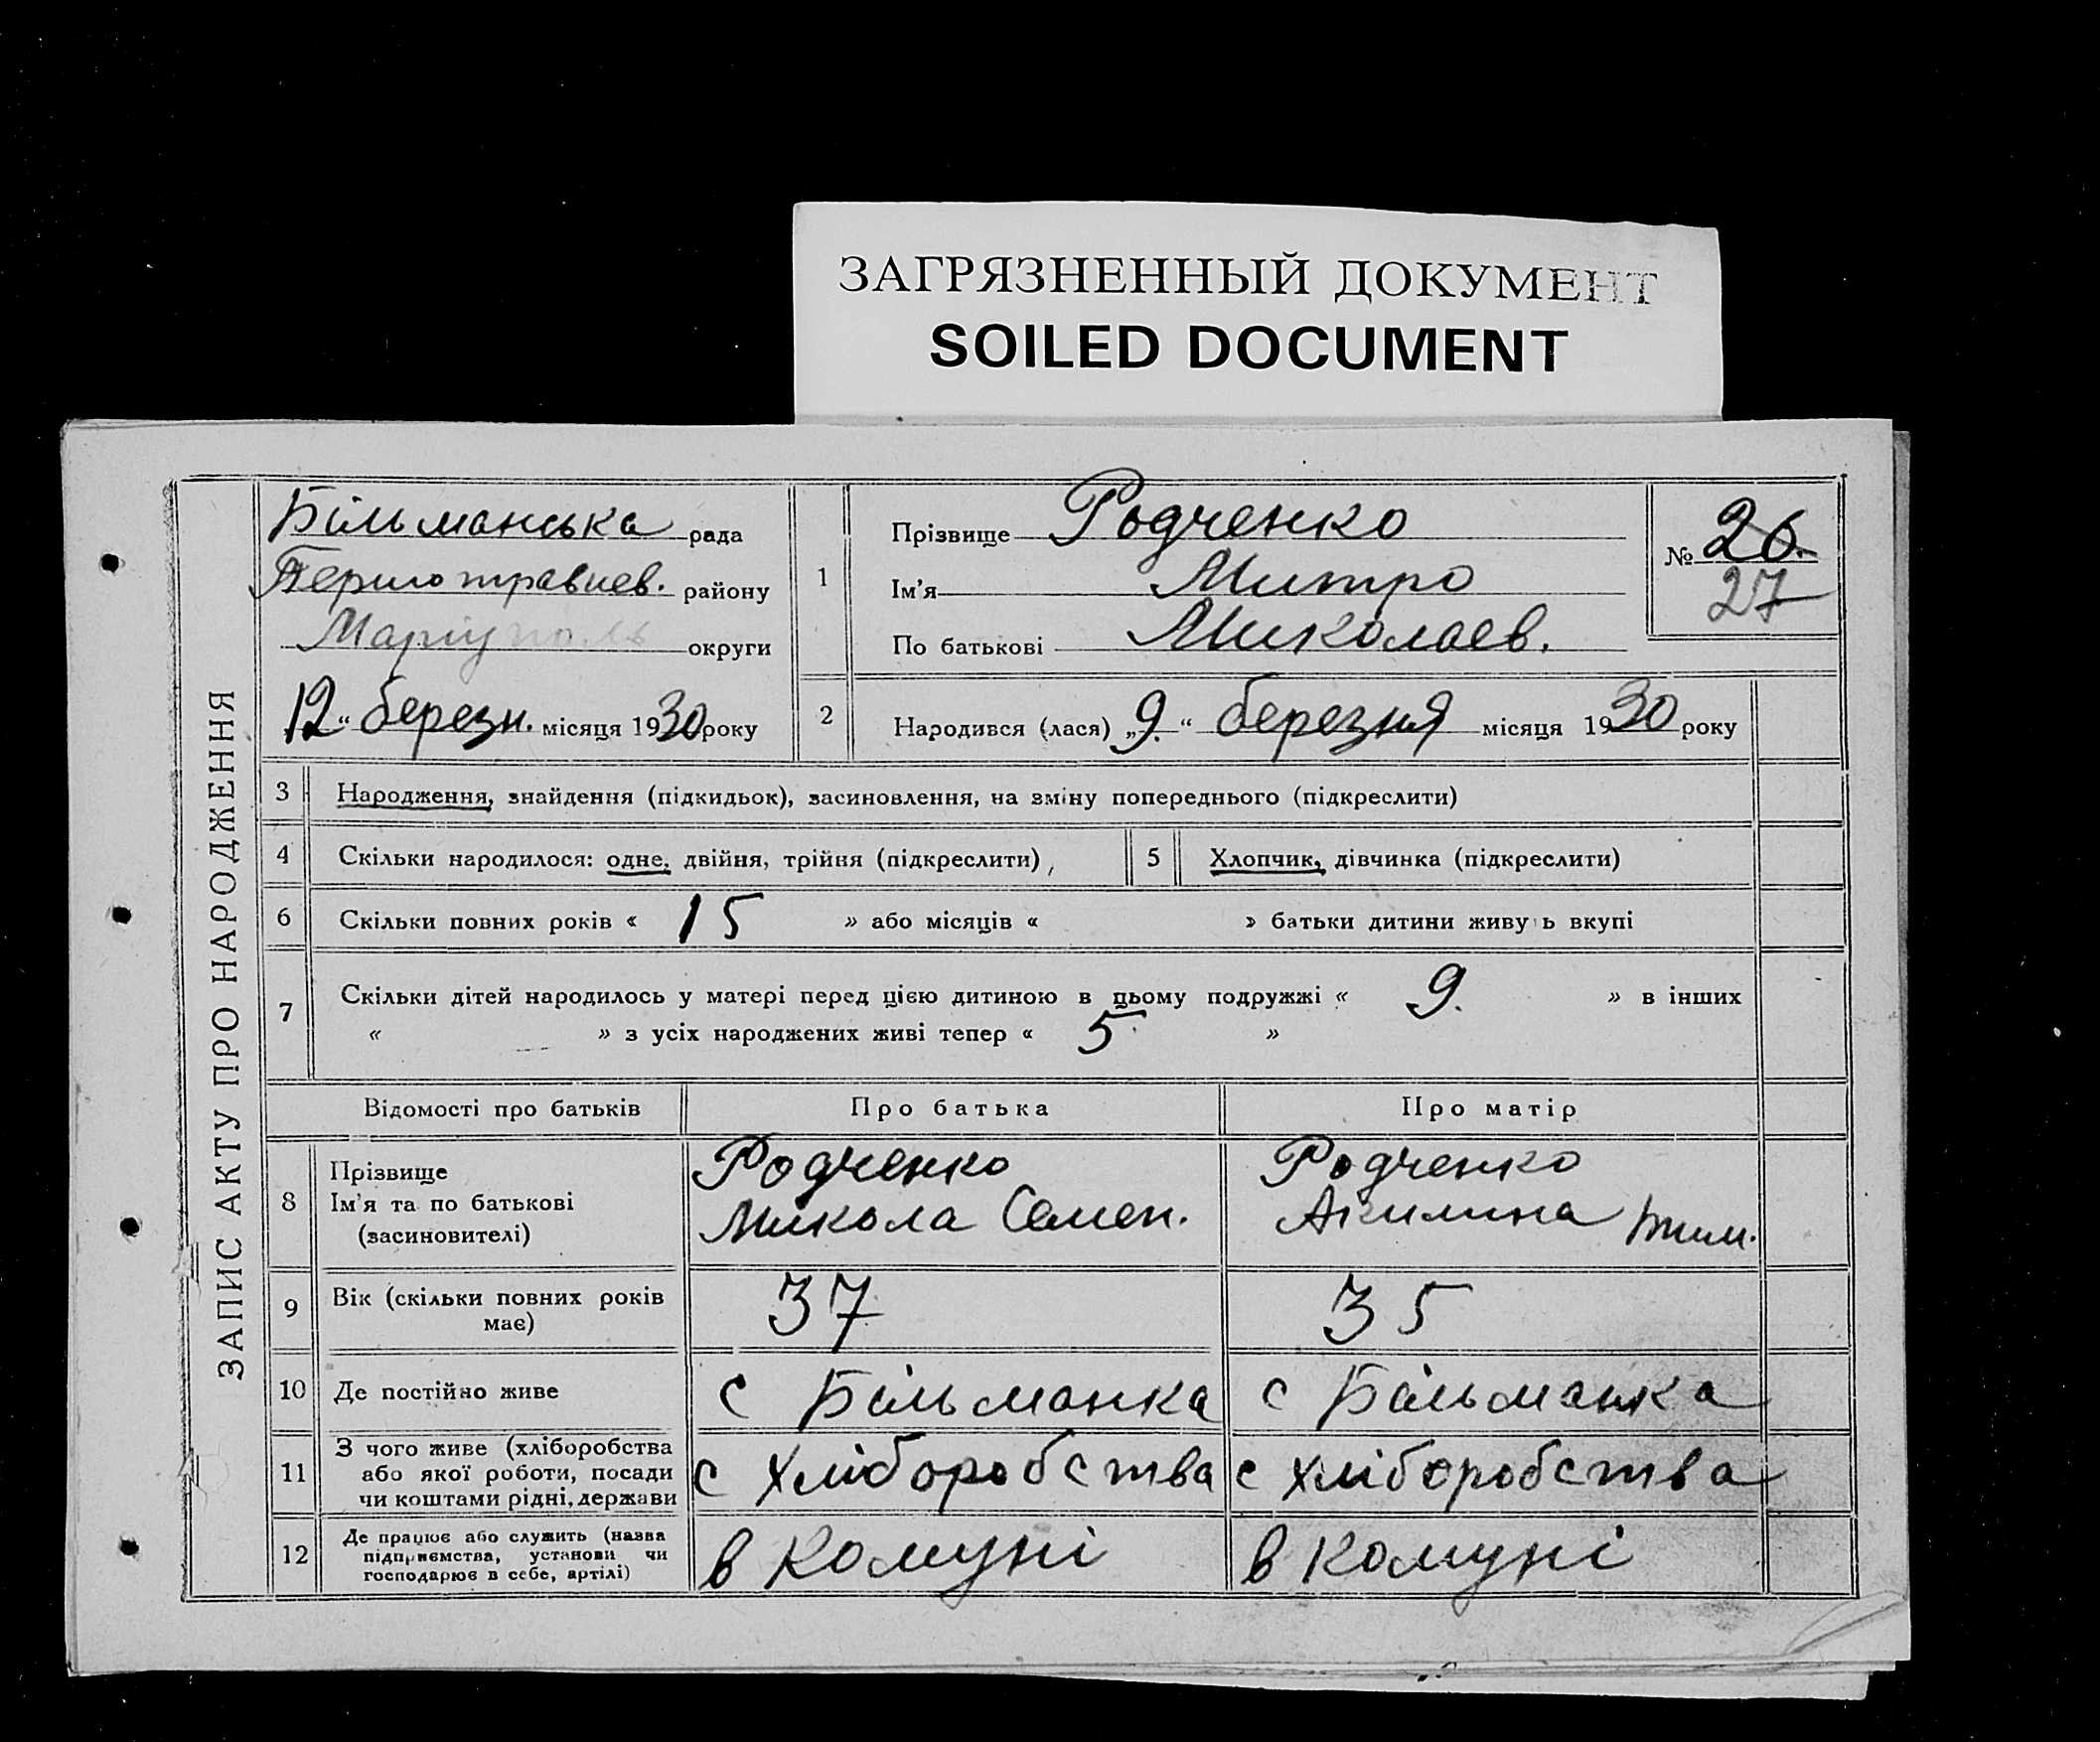 ЗАГРЯЗНЕННЫЙ ДОКУМЕНТ
SOILED DOCUMENT
ЗАПИС АКТУ ПРО НАРОДЖЕННЯ
Більманська рада
Першотравнев. району
Маріуполь округи
12 " березн. місяця 1930 року
1
Прізвище Родченко
Ім'я Митро
По батькові Миколаев.
№ 26.
27
2 Народився (лася) „9." березня місяця 1930 року
3 Народження, знайдення (підкидьок), засиновлення, на зміну попереднього (підкреслити)
4 Скільки народилося: одне, двійня, трійня (підкреслити)
5 Хлопчик, дівчинка (підкреслити)
6 Скільки повних років « 15 » або місяців « » батьки дитини живу ь вкупі
7 Скільки дітей народилось у матері перед цією дитиною в цьому подружжі « 9. » в інших
« » з усіх народжених живі тепер « 5 »
Відомості про батьків Про батька Про матір
8 Прізвище
Ім'я та по батькові
(засиновителі)
Родченко
Микола Семен.
Родченко
Акилина Тим.
9 Вік (скільки повних років
має)
37 35
10 Де постійно живе с Більманка с Більманка
11 З чого живе (хліборобства
або якої роботи, посади
чи коштами рідні, держави
с хліборобства с хліборобства
12 Де працює або служить (назва
підприємства, установи чи
господарює в себе, артілі)
в комуні в комуні